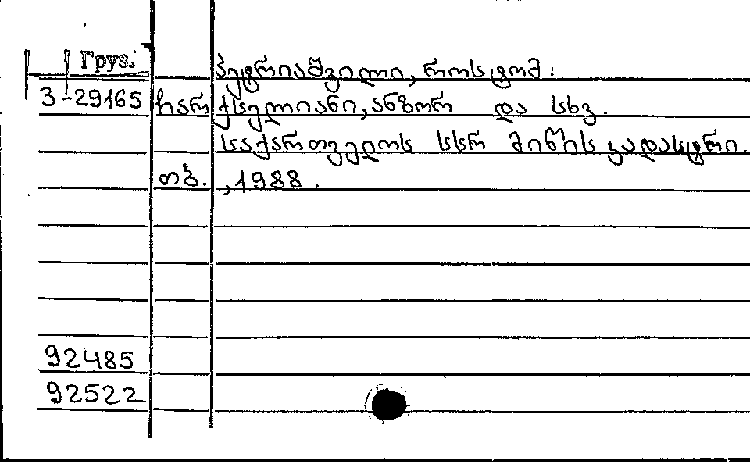 Груз.
პეტრიაშვილი, როსტომ.
3-29165 ჩარქსელიანი, ანზორ და სხვ.
საქართველოს სსრ მიწის კადასტრი.
თბ., 1988.
92485
92522